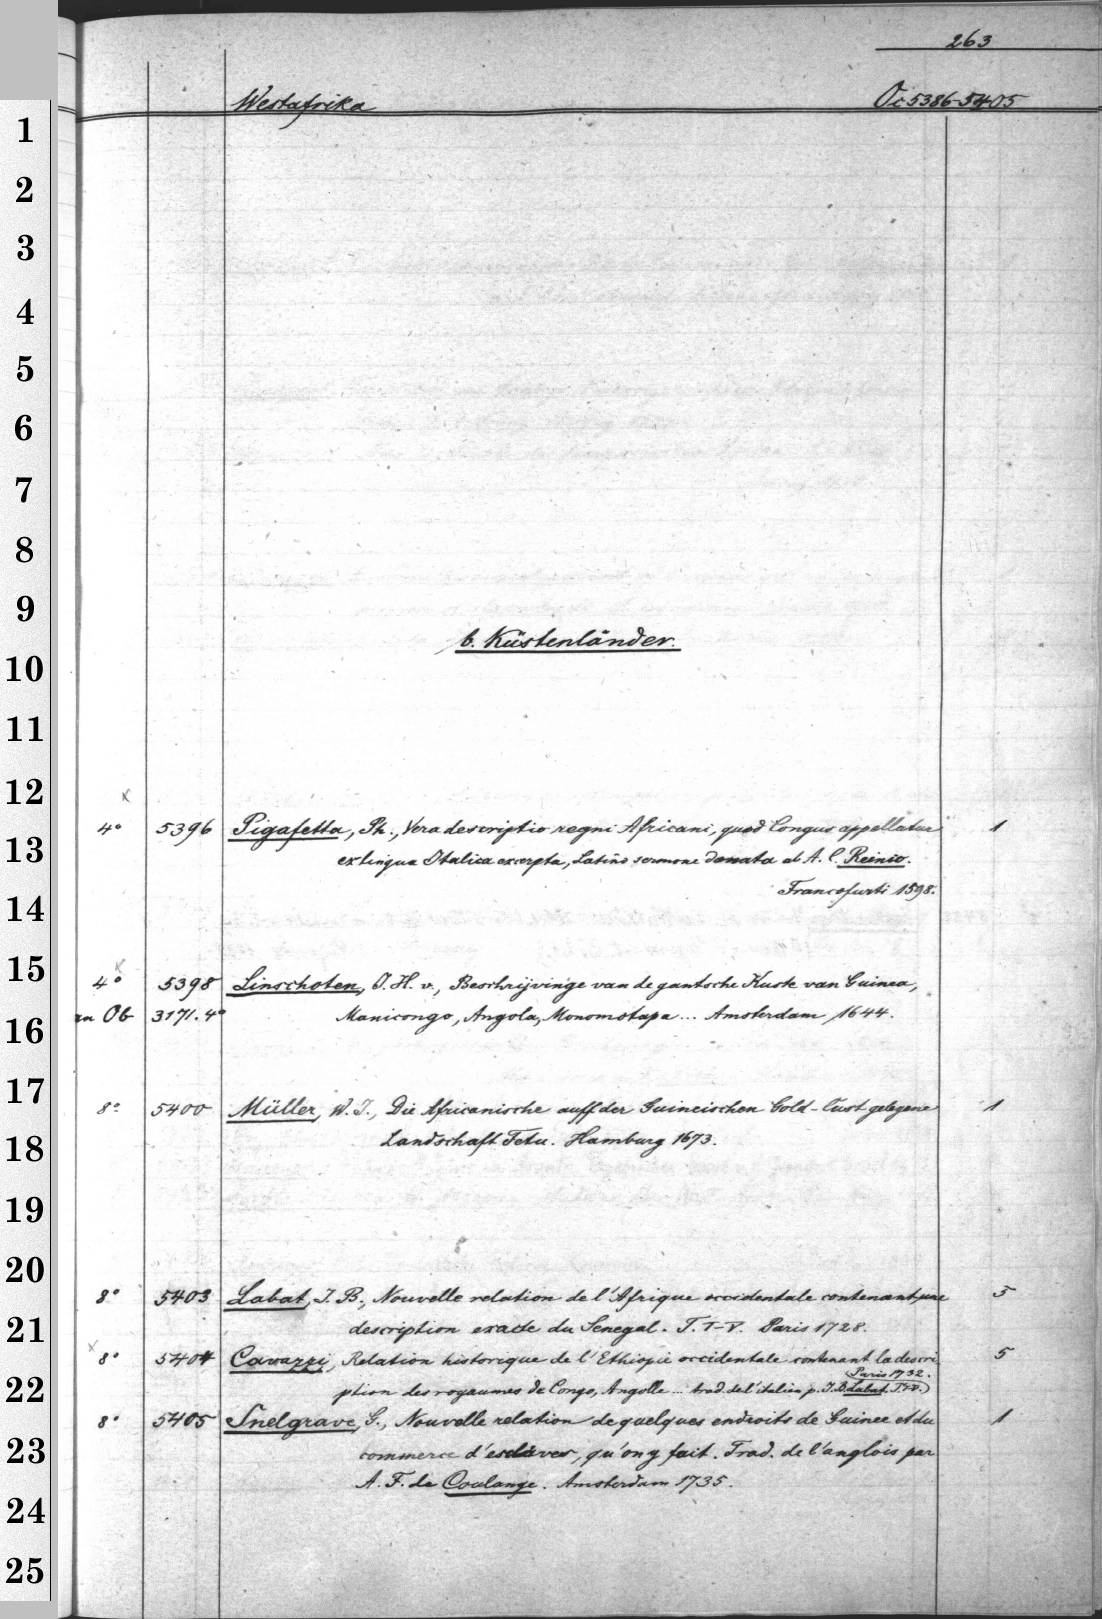 263
Westafrika Oc 5386-5405
1
2
3
4
5
6
7
8
9
b. Küstenländer.
10
11
12 x
4° 5396 Pigafetta, Ph., Vera descriptio regni Africani, quod Congus appellatur 1
13 ex lingua Italica excerpta, Latino sermone donata ab A. C. Reinio.
14 Francofurti 1598.
15 x
4° 5398 Linschoten, J. H. v., Beschrijvinge van de gantsche Kuste van Guinea,
16 an Ob 3171. 4° Manicongo, Angola, Monomotapa... Amsterdam 1644.
17
8° 5400 Müller, W. J., Die Africanische auff der Guineischen Gold-Cust gelegene 1
18 Landschaft Fetu. Hamburg 1673.
19
20
8° 5403 Labat, J. B., Nouvelle relation de l'Afrique occidentale contenant une 5
21 description exacte du Senegal. T. I-V. Paris 1728.
x 8° 5404 Cavazzi, Relation historique de l'Ethiopie occidentale contenant la descri 5
Paris 1732.
22 ption des royaumes de Congo, Angolle... trad. de l'italien p. J. B. Labat. T. I-V.)
8° 5405 Snelgrave, G., Nouvelle relation de quelques endroits de Guinee et du 1
23 commerce d'esclaves, qu'on y fait. Trad. de l'anglois par
24 A. F. de Coulange. Amsterdam 1735.
25